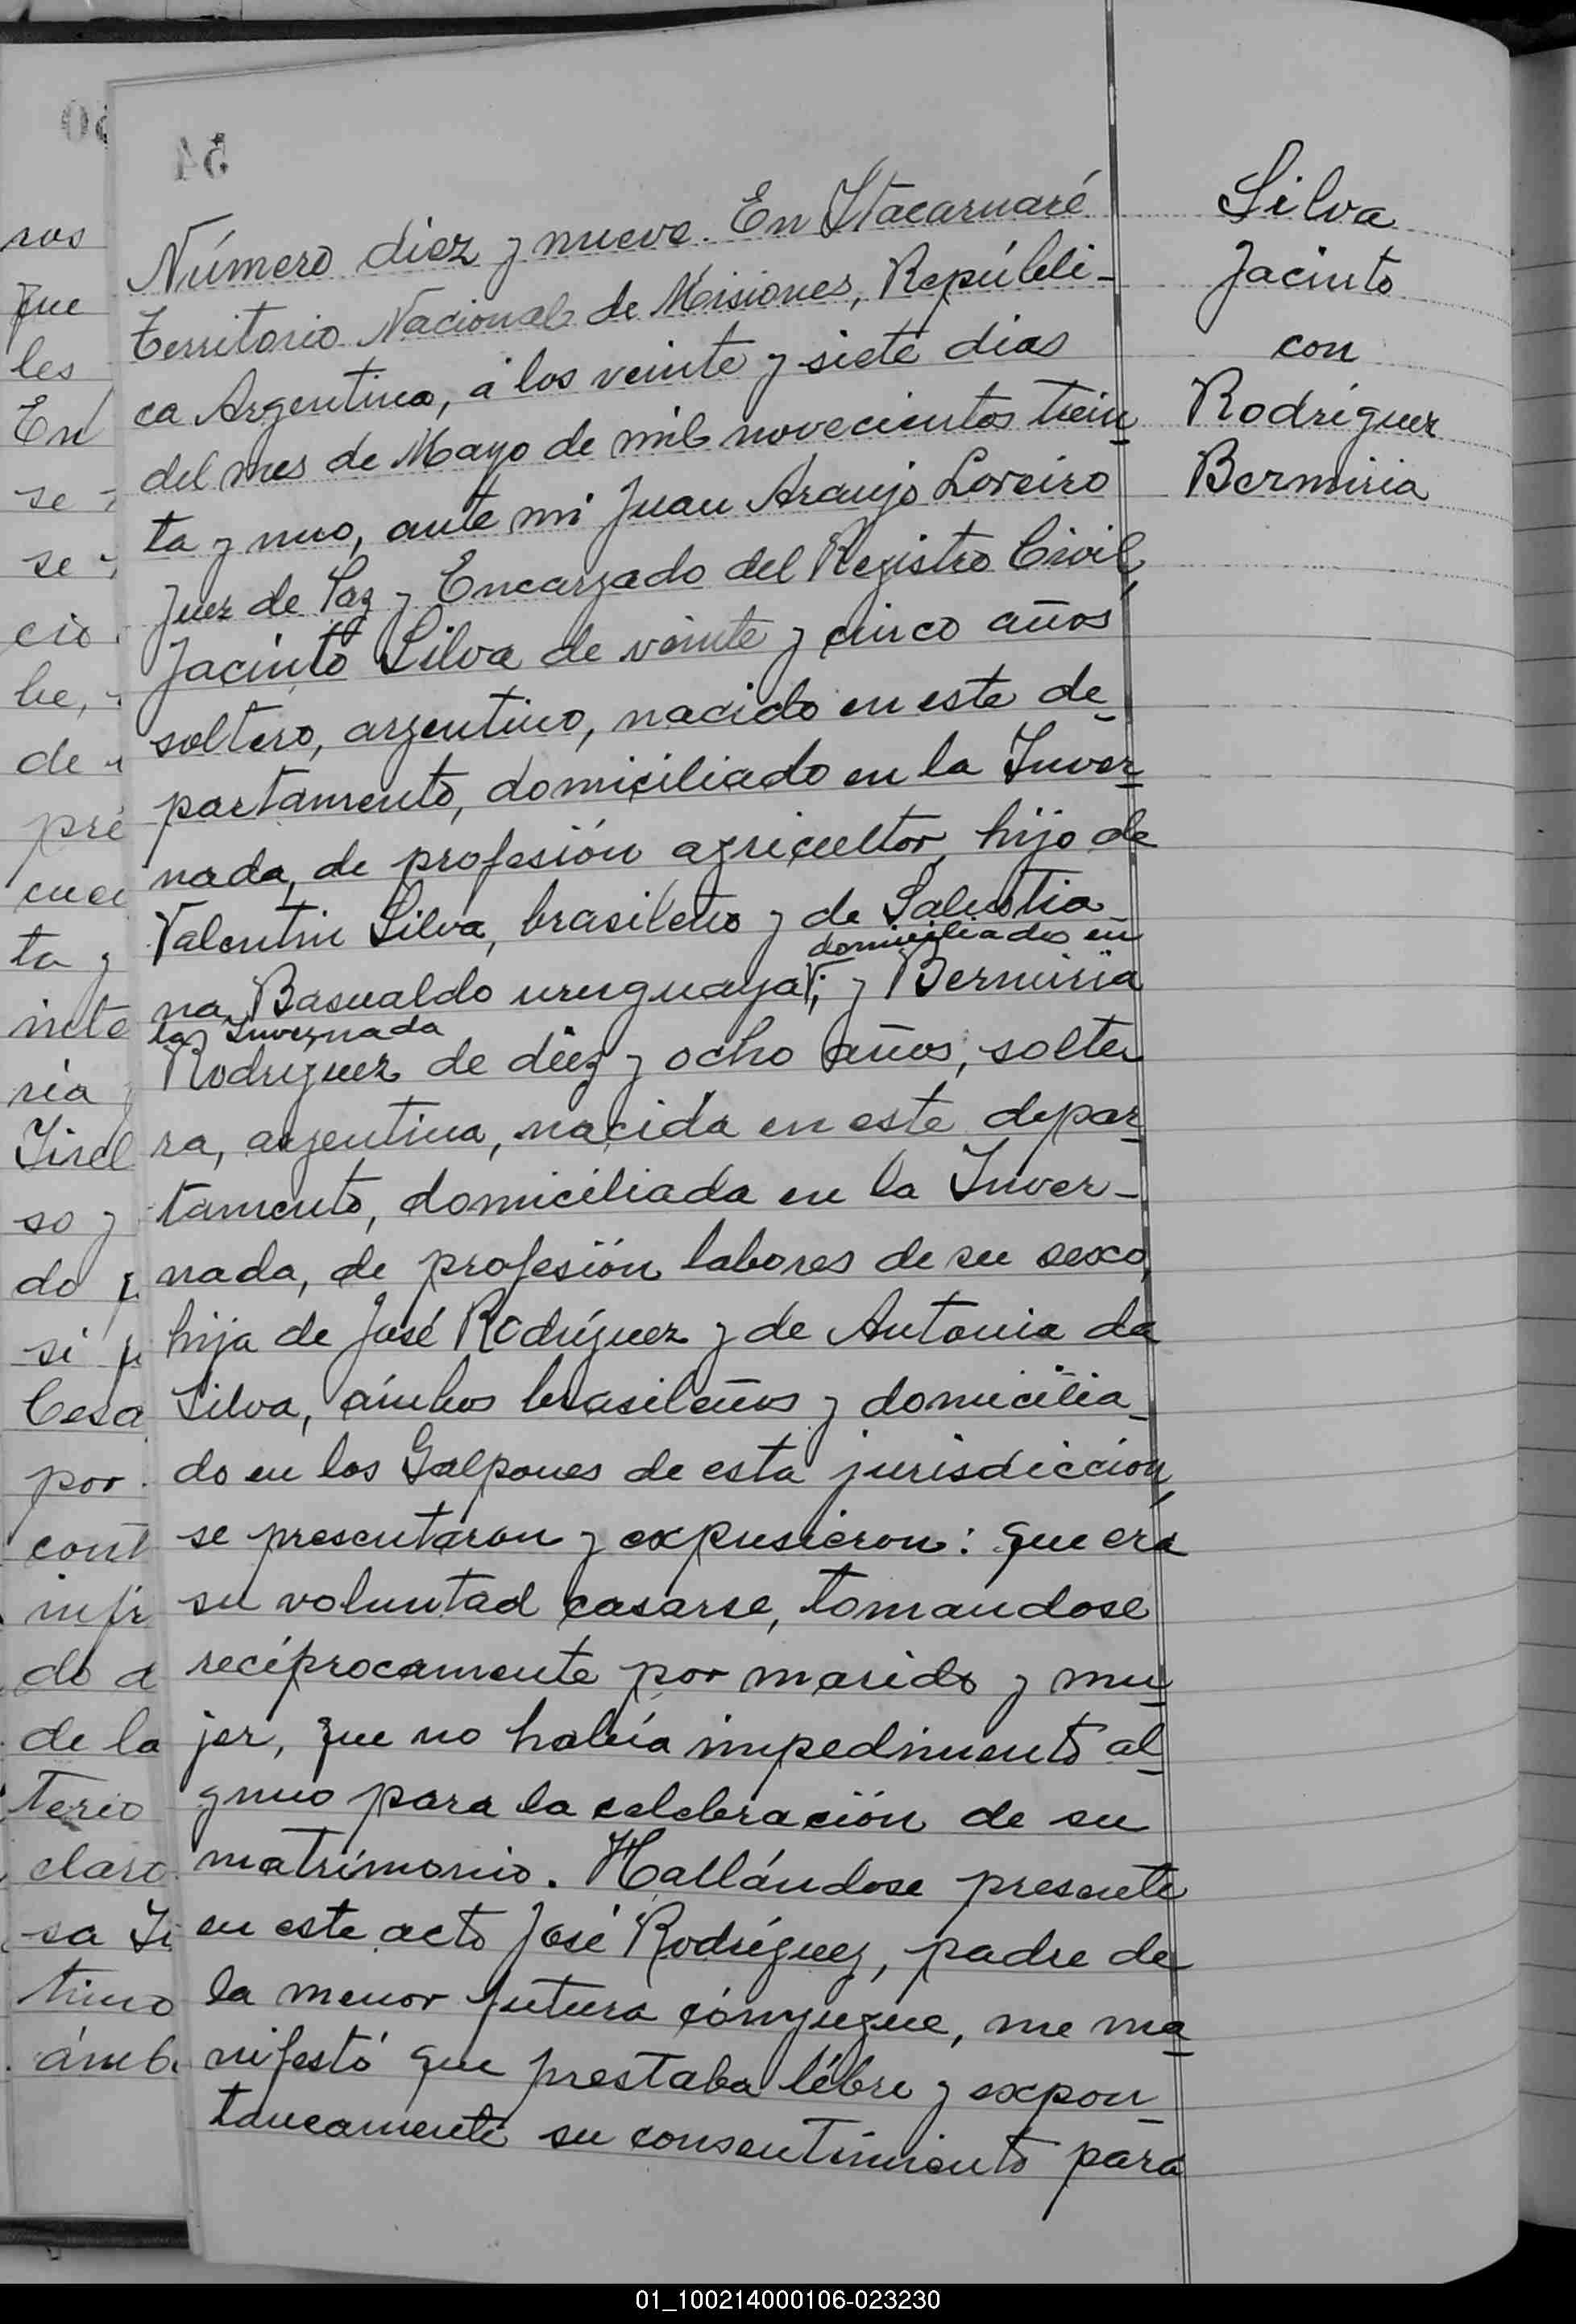 54
Número diez y nueve. En Itacaruaré
Territorio Nacional de Misiones, Repúbli-
ca Argentina, á los veinte y siete dias
del mes de Mayo de mil novecientos trein
ta y uno, ante mi Juan Araujo Loreiro
Juez de Paz y Encargado del Registro Civil,
Jacinto Silva de veinte y cinco años
soltero, argentino, nacido en este de-
partamento, domiciliado en la Inver-
nada, de profesión agricultor, hijo de
Valentin Silva, brasileño y de Salustia-
domiciliados en
na Basualdo uruguaya; y Bermiria
la Invernada
Rodriguez de diez y ocho años, solte
ra, argentina, nacida en este depar-
tamento, domiciliada en la Inver-
nada, de profesión labores de su sexo,
hija de José Rodríguez y de Antonia da
Silva, ámbos brasileños y domicilia-
do en los Galpones de esta jurisdicción,
se presentaron y expusieron: que era
su voluntad casarse, tomandose
recíprocamente por marido y mu-
jer, que no había impedimento al-
guno para la celebración de su
matrimonio. Hallándose presente
en este acto José Rodríguez, padre de
la menor futura cónyugue, me ma-
nifestó que prestaba libre y expon-
taneamente su consentimiento para
Silva
Jacinto
con
Rodríguez
Bermiria
ros
que
les
En
se
se
cio
be,
de
pre
cuci
ta y
inte
ria
Tirel
so y
do
si
Cesa
por
cont
infr
do a
de la
terio
claro
sa Ti
timo
ámb
01_100214000106-023230